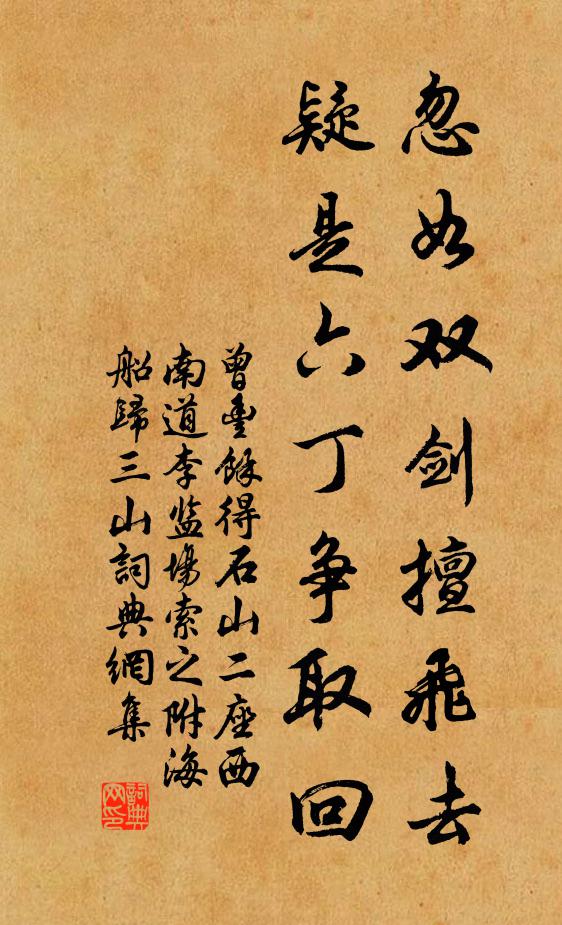 忽如双剑擅飛去
疑是六丁争取回
曾豊餘得石山二座西
南道李监場索之附海
船歸三山詞典網集
詞典
网印